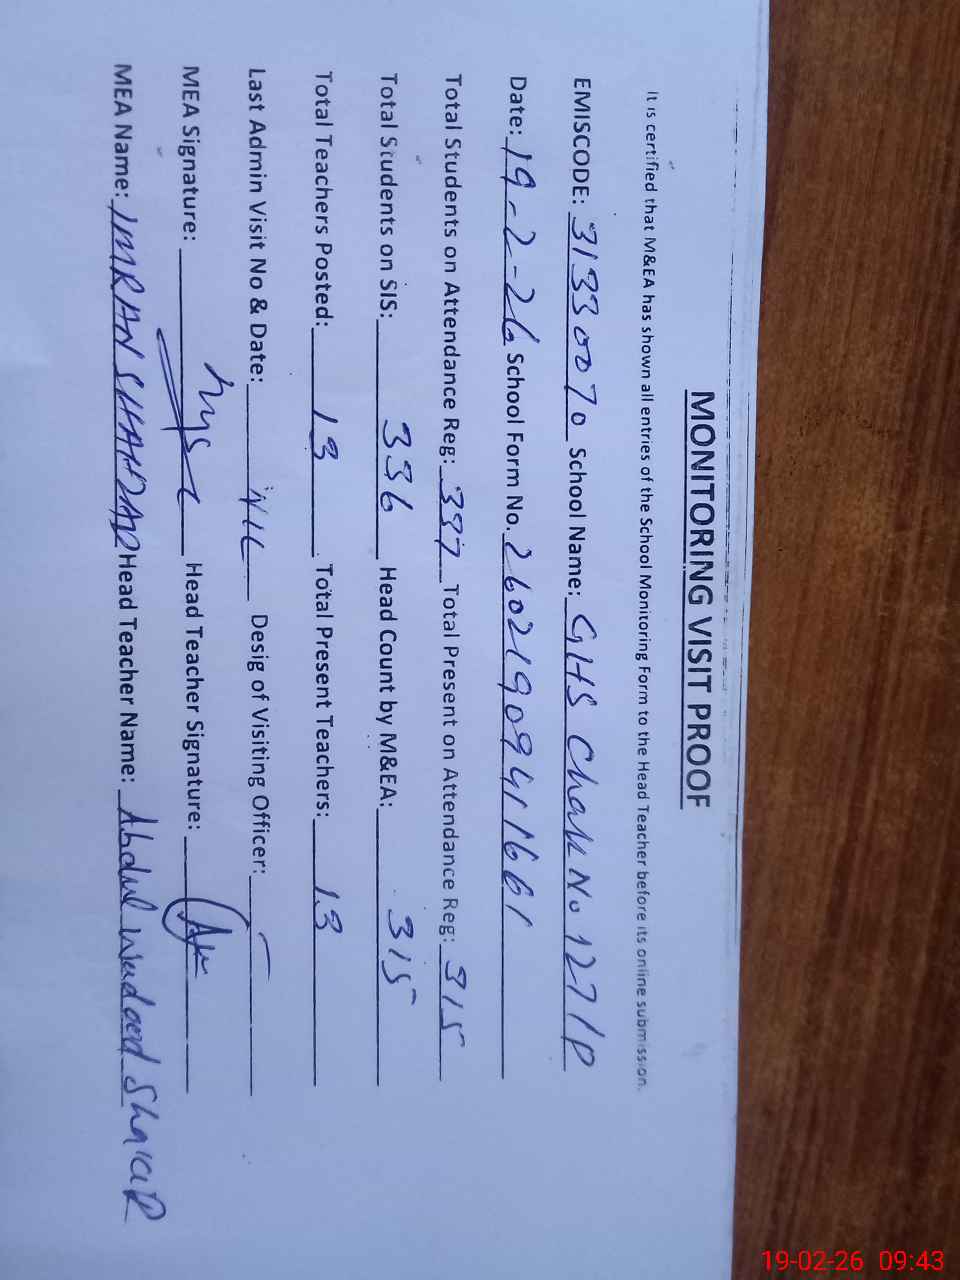 MONITORING VISIT PROOF
It is certified that M&EA has shown all entries of the School Monitoring Form to the Head Teacher before its online submission.
EMISCODE: 31330070 School Name: GHS Chak No 127/P
Date: 19-2-26 School Form No. 2602190941661
Total Students on Attendance Reg: 337 Total Present on Attendance Reg: 315
Total Students on SIS: 336 Head Count by M&EA: 315
Total Teachers Posted: 13 Total Present Teachers: 13
Last Admin Visit No & Date: NIL Desig of Visiting Officer:
MEA Signature: Head Teacher Signature:
MEA Name: IMRAN SHAHZAD Head Teacher Name: Abdul Shakir
19-02-26 09:43